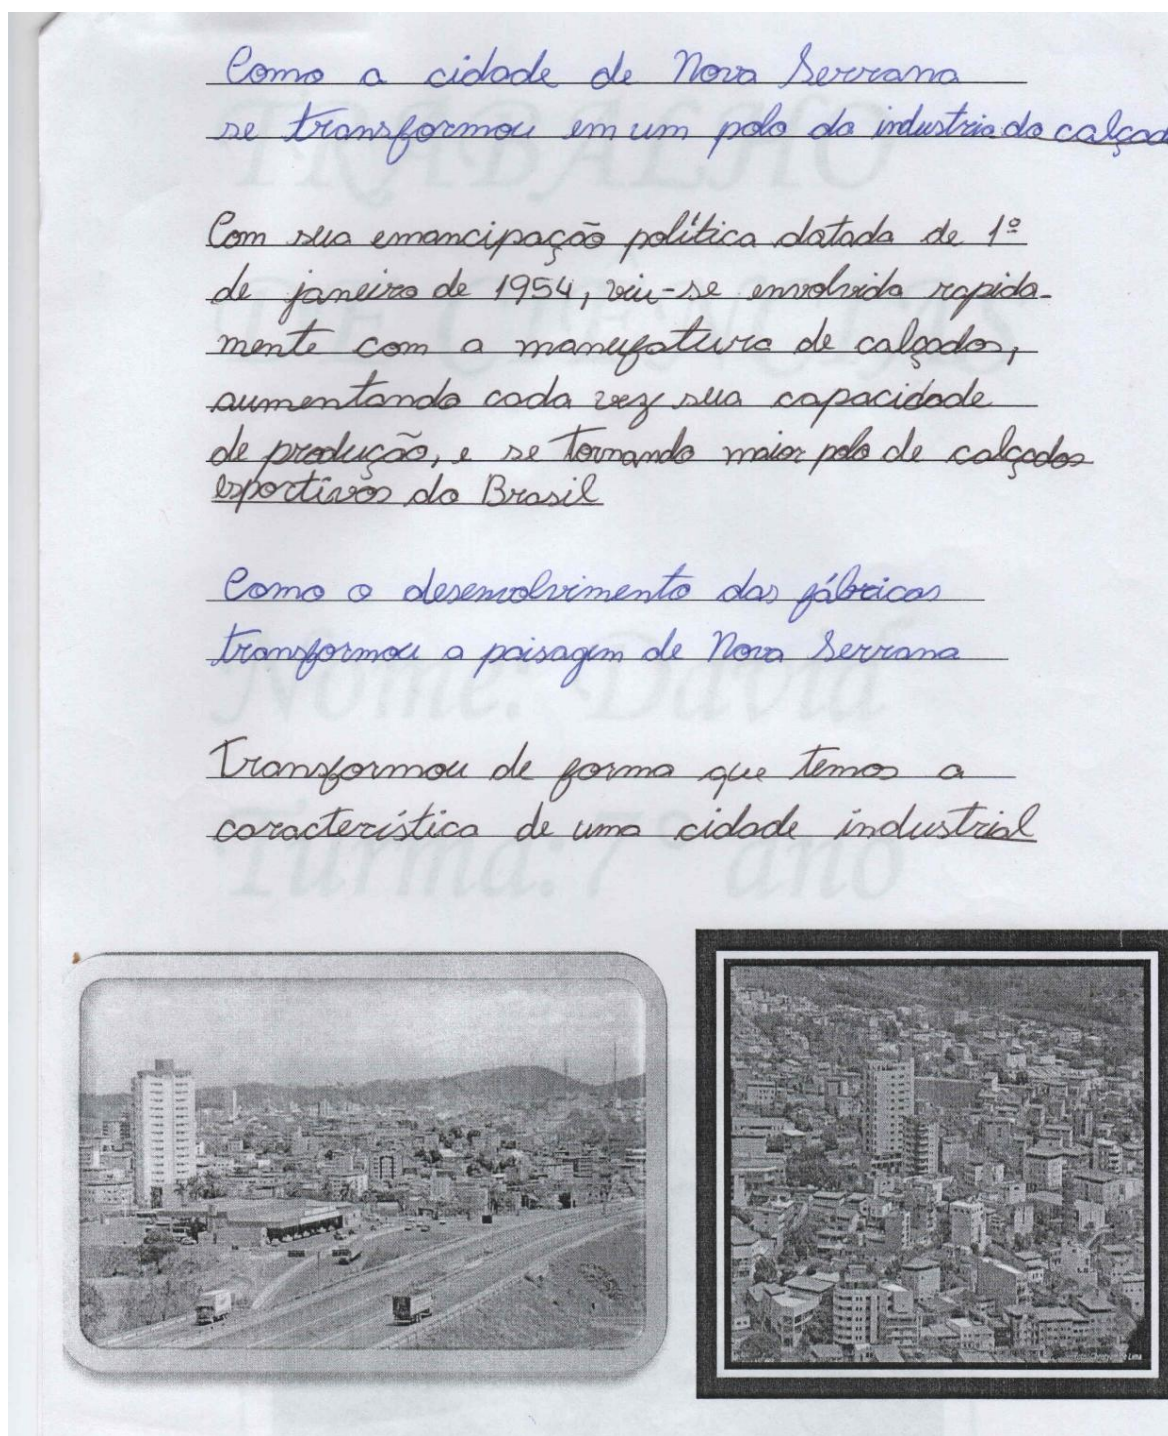 Como a cidade de Nova Serrana
se transformou em um polo da industria do calçad
Com sua emancipação política datada de 1º
de janeiro de 1954, viu-se envolvida rapida-
mente com a manufatura de calçados,
aumentando cada vez sua capacidade
de produção, e se tornando maior polo de calçados
esportivos do Brasil
Como o desenvolvimento das fábricas
transformou a paisagem de Nova Serrana
Transformou de forma que temos a
característica de uma cidade industrial
TRABALHO
DE CIÊNCIAS
Nome: David
Turma: 7º ano
Lima